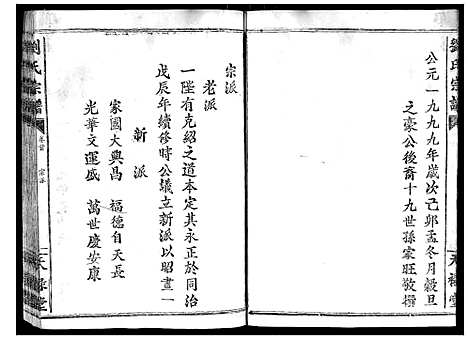 劉氏宗譜
天祿堂
公元一九九九年歲次己卯孟冬月穀旦
之豪公後裔十九世孫宗旺敬撰
宗派
老派
一陞有克紹之道本定其永正於同治
戊辰年續修時公議立新派以昭畫一
新派
家國大興昌 福德自天長
光華文運盛 萬世慶安康
劉氏宗譜
卷首
宗派
天祿堂